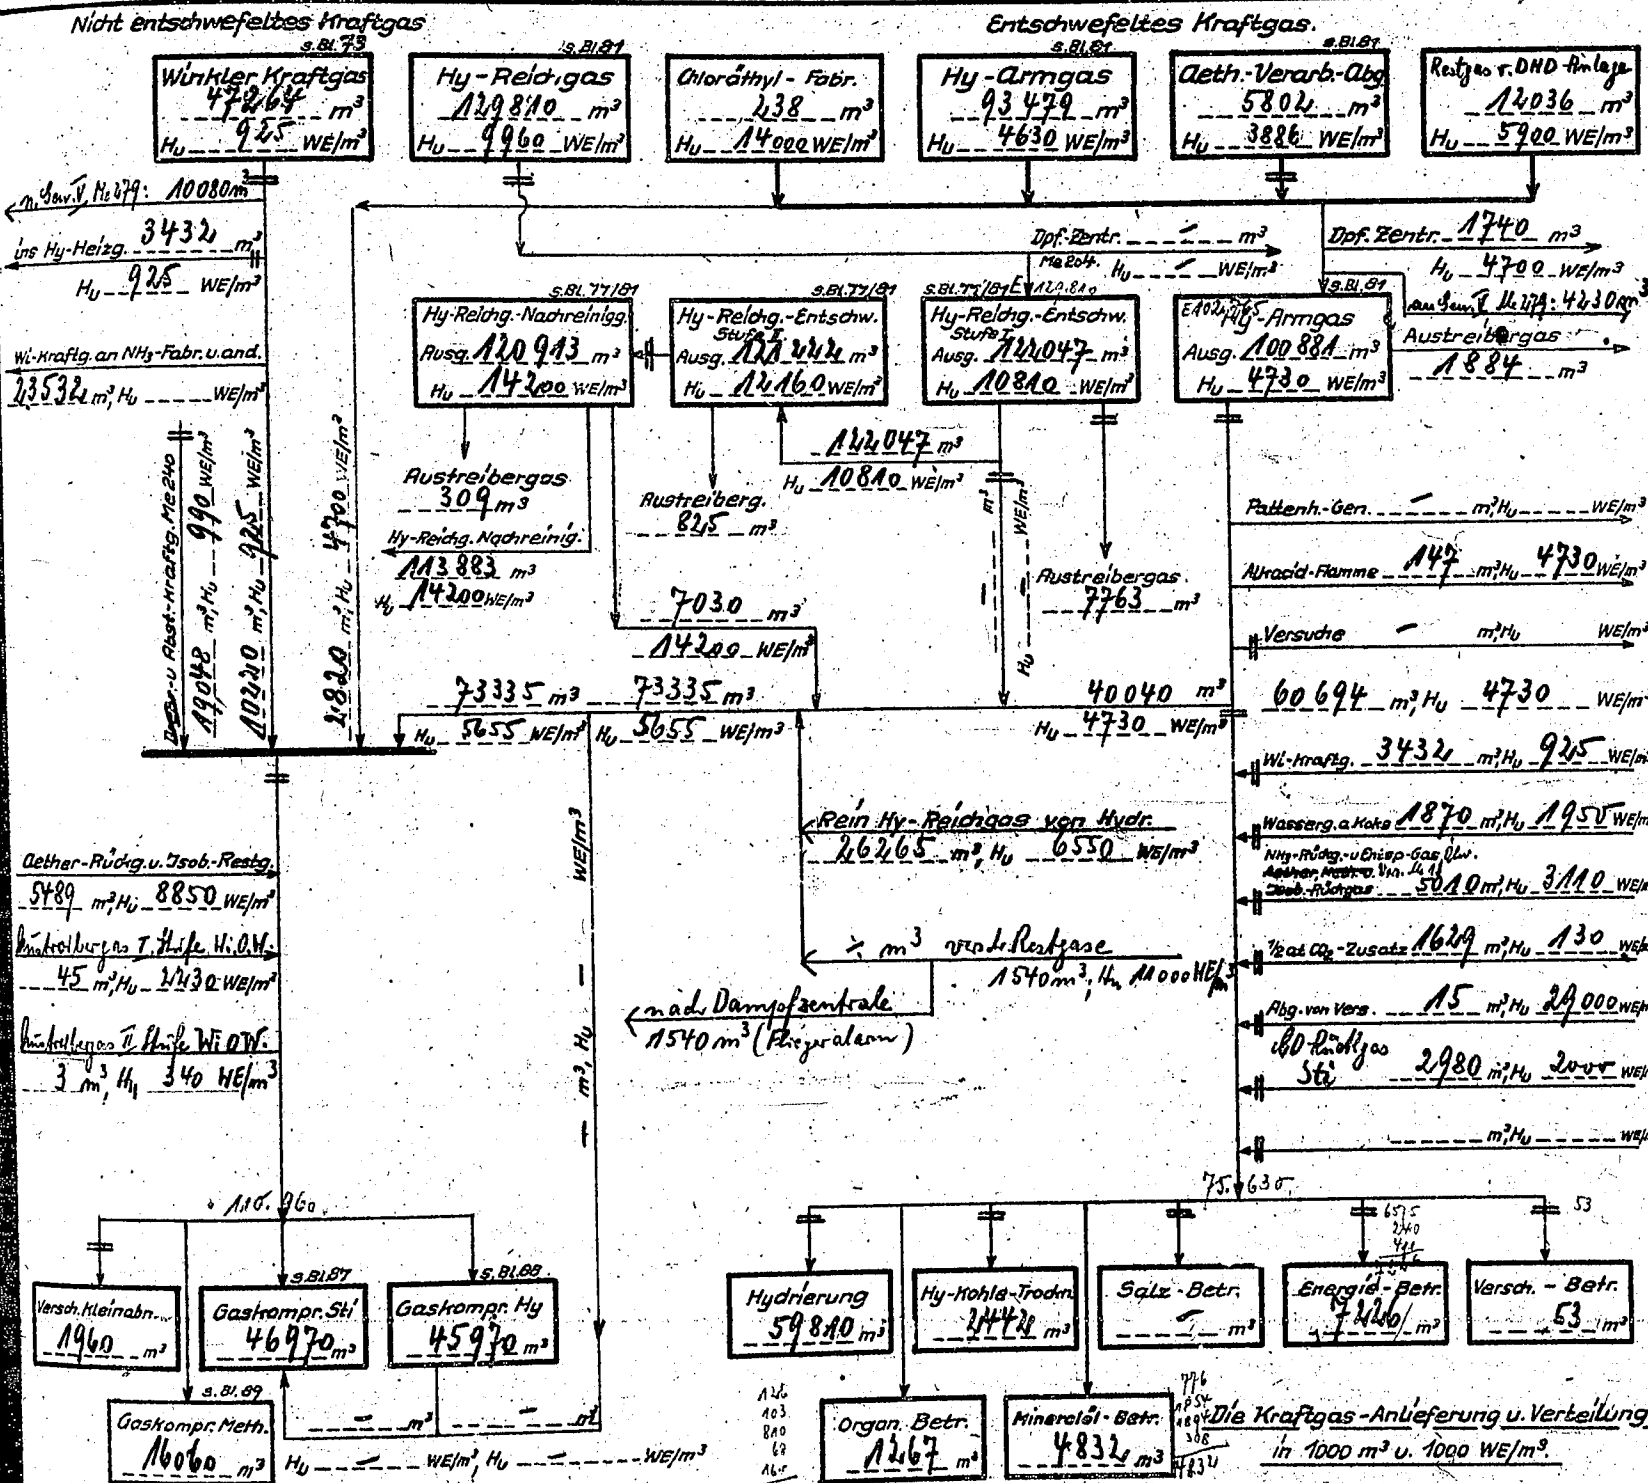 Nicht entschwefeltes Kraftgas
Entschwefeltes Kraftgas.
s.Bl.73
Winkler Kraftgas
47264 m³
Hu 925 WE/m³
s.Bl.81
Hy-Reichgas
129810 m³
Hu 9960 WE/m³
Chloräthyl-Fabr.
238 m³
Hu 14000 WE/m³
s.Bl.81
Hy-Armgas
93479 m³
Hu 4630 WE/m³
s.Bl.81
Aeth.-Verarb.-Abg
5802 m³
Hu 3886 WE/m³
Restgas v. DHD-Anlage
12036 m³
Hu 5900 WE/m³
Me 279: 10080 m³
ins Hy-Heizg. 3432 m³
Hu 925 WE/m³
Wi-Kraftg. an NH₃-Fabr. u. and.
23532 m³, Hu WE/m³
Dpf.-Zentr. - m³
Me 204. Hu - WE/m³
Dpf. Zentr. 1740 m³
Hu 4700 WE/m³
Me 279: 4230 m³
Austreibergas
1884 m³
s.Bl.77/81
Hy-Reichg.-Nachreinigg.
Ausg. 120913 m³
Hu 14200 WE/m³
s.Bl.77/81
Hy-Reichg.-Entschw.
Stufe II
Ausg. 121222 m³
Hu 12160 WE/m³
s.Bl.77/81 E 129.810
Hy-Reichg.-Entschw.
Stufe I
Ausg. 122047 m³
Hu 10810 WE/m³
s.Bl.81
E 102765
Hy-Armgas
Ausg. 100881 m³
Hu 4730 WE/m³
122047 m³
Hu 10810 WE/m³
Austreibergas
309 m³
Austreiberg.
825 m³
Hy-Reichg. Nachreinig.
113883 m³
Hu 14200 WE/m³
Austreibergas.
7763 m³
7030 m³
14200 WE/m³
u. Abst.-Kraftg. Me 240
19048 m³, Hu 990 WE/m³
10220 m³, Hu 925 WE/m³
2820 m³, Hu 4700 WE/m³
- m³
Hu - WE/m³
Pattenh.-Gen. - m³, Hu WE/m³
Alkacid-Flamme 147 m³, Hu 4730 WE/m³
Versuche - m³, Hu WE/m³
73335 m³ 73335 m³
Hu 5655 WE/m³ Hu 5655 WE/m³
40040 m³
Hu 4730 WE/m³
60694 m³, Hu 4730 WE/m³
Wi-Kraftg. 3432 m³, Hu 925 WE/m³
Wasserg. a. Koks 1870 m³, Hu 1955 WE/m³
NH₃-Rückg.-u Entsp-Gas
Isob.-Rückgas 5010 m³, Hu 3110 WE/m³
½ at CO₂-Zusatz 1629 m³, Hu 130 WE/m³
Abg. von Vers. 15 m³, Hu 29000 WE/m³
CO-Rückgas
Sti 2980 m³, Hu 2000 WE/
m³, Hu WE/
Rein Hy-Reichgas von Hydr.
26265 m³, Hu 6550 WE/m³
m³ Restgase
1540 m³; Hu 11000 WE/m³
nach Dampfzentrale
1540 m³ (Fliegeralarm)
- m³, Hu - WE/m³
Aether-Rückg. u. Isob.-Restg.
5489 m³, Hu 8850 WE/m³
Austreibergas I. Stufe W.O.W.
45 m³, Hu 2230 WE/m³
Austreibergas II Stufe Wi OW.
3 m³, Hu 340 WE/m³
110.960
75.630
Versch. Kleinabn.
1960 m³
s.Bl.87
Gaskompr. Sti
46970 m³
s.Bl.88
Gaskompr. Hy
45970 m³
s.Bl.89
Gaskompr. Meth.
16060 m³
- m³ - m³
Hu - WE/m³, Hu - WE/m³
Hydrierung
59810 m³
Hy-Kohle-Trockn.
2442 m³
Salz-Betr.
- m³
Energie-Betr.
7226 m³
53
Versch.-Betr.
53 m³
Organ. Betr.
1267 m³
Mineralöl-Betr.
4832 m³
Die Kraftgas-Anlieferung u. Verteilung
in 1000 m³ u. 1000 WE/m³.